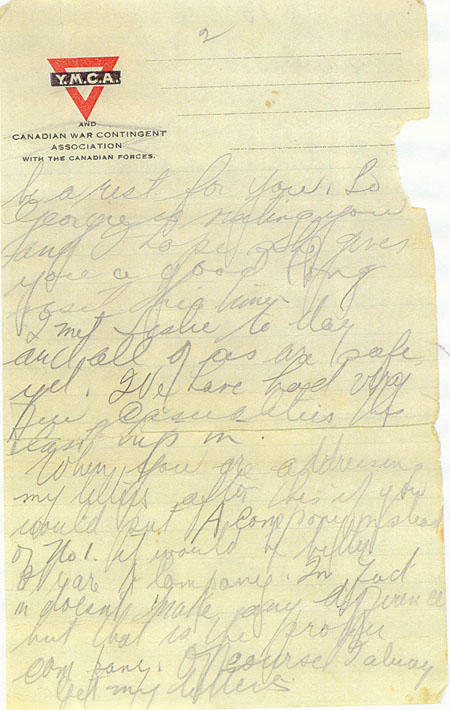 2
Y.M.C.A.
AND
CANADIAN WAR CONTINGENT
ASSOCIATION
WITH THE CANADIAN FORCES.
be a rest for you. So
Georgie is visiting you
and I hope she gives
you a good long
visit this time.
I met Leslie to day
and all of us are safe
yet. We have had very
few casualties this
last trip in
When you are addressing
my letters after this if you
would put A Company instead
of No 1. it would be better
Company. In fact
it doesn't make any difference
but that is the proper
company. Of course I always
get my letters